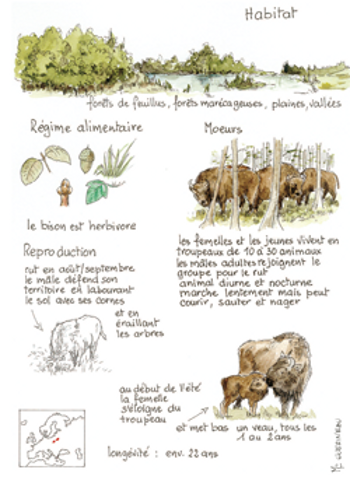 Habitat
forêts de feuillus, forêts marécageuses, plaines, vallées
Régime alimentaire
le bison est herbivore
Moeurs
les femelles et les jeunes vivent en
troupeaux de 10 à 30 animaux
les mâles adultes rejoignent le
groupe pour le rut
animal diurne et nocturne
marche lentement mais peut
courir, sauter et nager
Reproduction
rut en août/septembre
le mâle défend son
territoire en labourant
le sol avec ses cornes
et en
éraillant
les arbres
au début de l'été
la femelle
s'éloigne du
troupeau
et met bas un veau, tous les
1 ou 2 ans
longévité : env. 22 ans